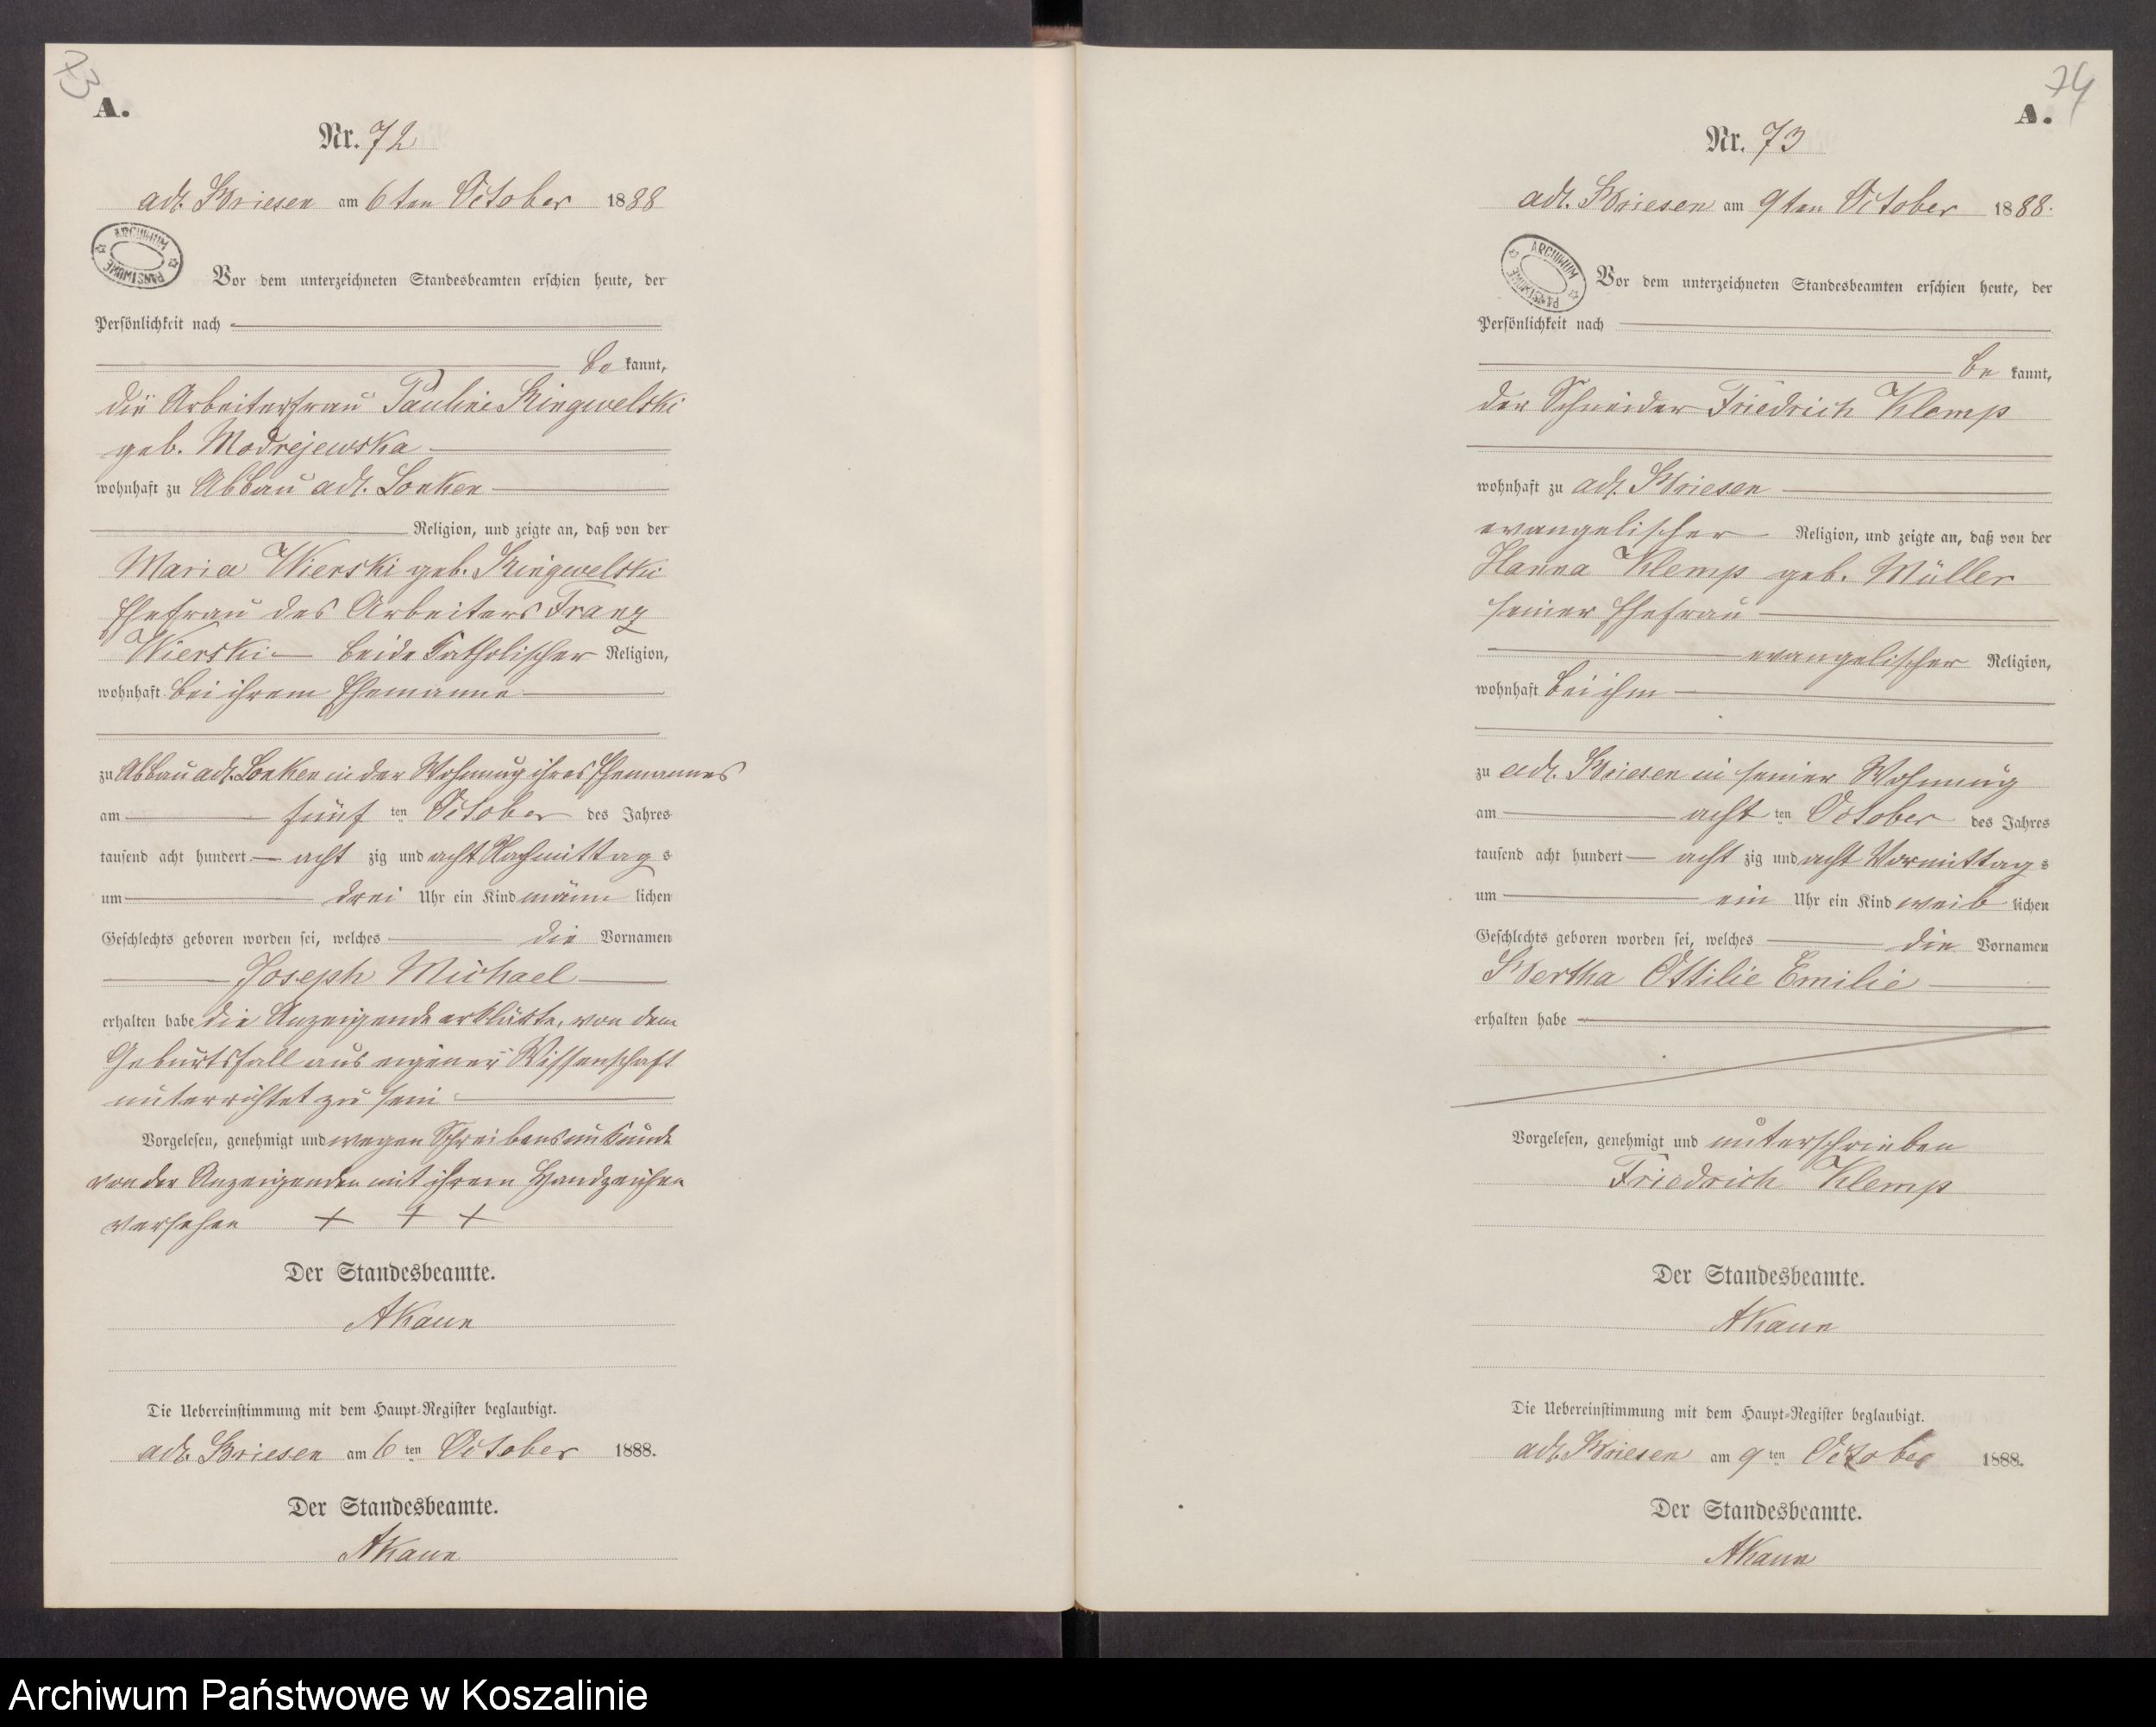 73
A.
Nr. 72
adl. Briesen am 6ten October 1888
ARCHIWUM PAŃSTWOWE
Vor dem unterzeichneten Standesbeamten erschien heute, der
Persönlichkeit nach
be kannt,
die Arbeiterfrau Pauline Ringwelski
geb. Modrejewska
wohnhaft zu Abbau adl. Lonken
Religion, und zeigte an, daß von der
Maria Wierski geb. Ringwelski
Ehefrau des Arbeiters Franz
Wierski beide katholischer Religion,
wohnhaft bei ihrem Ehemanne
zu Abbau adl. Lonken in der Wohnung ihres Ehemannes
am fünf ten October des Jahres
tausend acht hundert acht zig und acht Nachmittag s
um drei Uhr ein Kind männ lichen
Geschlechts geboren worden sei, welches die Vornamen
Joseph Michael
erhalten habe die Anzeigende erklärte, von dem
Geburtsfall aus eigener Wissenschaft
unterrichtet zu sein
Vorgelesen, genehmigt und wegen Schreibensunkunde
von der Anzeigenden mit ihrem Handzeichen
versehen + + +
Der Standesbeamte.
AKaun
Die Uebereinstimmung mit dem Haupt-Register beglaubigt.
adl. Briesen am 6 ten October 1888.
Der Standesbeamte.
AKaun
74
A.
Nr. 73
adl. Briesen am 9ten October 1888.
ARCHIWUM PAŃSTWOWE
Vor dem unterzeichneten Standesbeamten erschien heute, der
Persönlichkeit nach
be kannt,
der Schneider Friedrich Klemp
wohnhaft zu adl. Briesen
evangelischer Religion, und zeigte an, daß von der
Hanna Klemp geb. Müller
seiner Ehefrau
evangelischer Religion,
wohnhaft bei ihm
zu adl. Briesen in seiner Wohnung
am acht ten October des Jahres
tausend acht hundert acht zig und acht Vormittag s
um ein Uhr ein Kind weib lichen
Geschlechts geboren worden sei, welches die Vornamen
Bertha Ottilie Emilie
erhalten habe
Vorgelesen, genehmigt und unterschrieben
Friedrich Klemp
Der Standesbeamte.
AKaun
Die Uebereinstimmung mit dem Haupt-Register beglaubigt.
adl. Briesen am 9 ten October 1888.
Der Standesbeamte.
AKaun
Archiwum Państwowe w Koszalinie